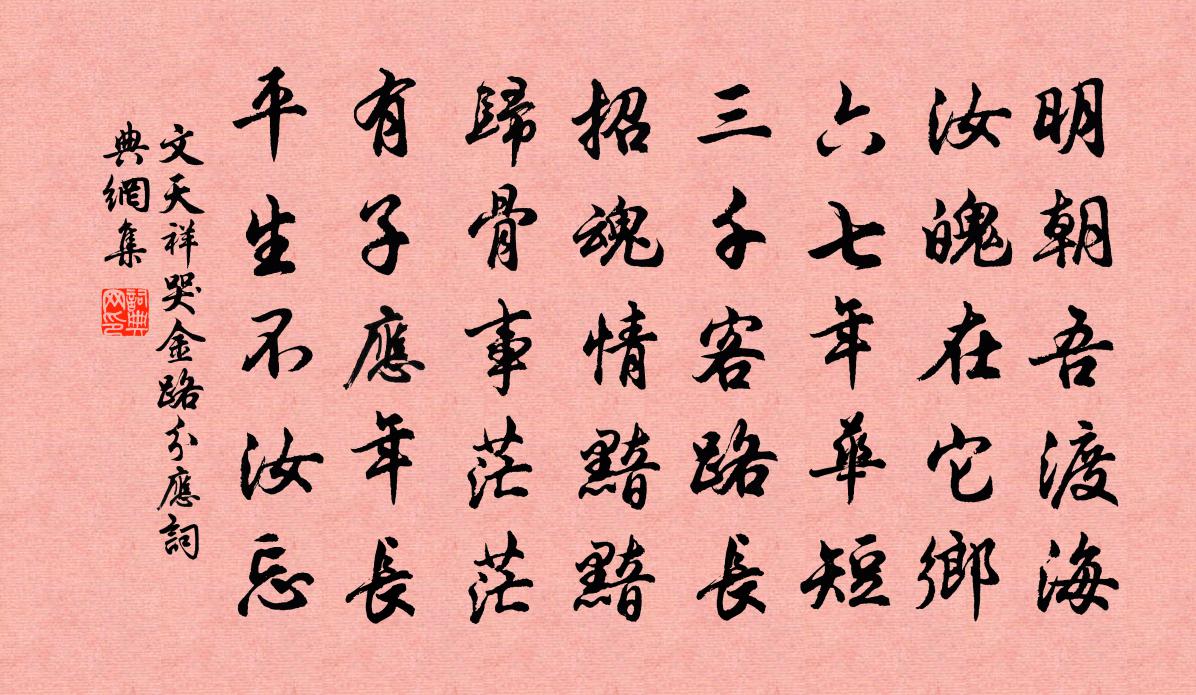 明朝吾渡海
汝魄在它鄉
六七年華短
三千客路長
招魂情黯黯
歸骨事茫茫
有子應年長
平生不汝忘
文天祥哭金路分應詞
典網集
詞典網印